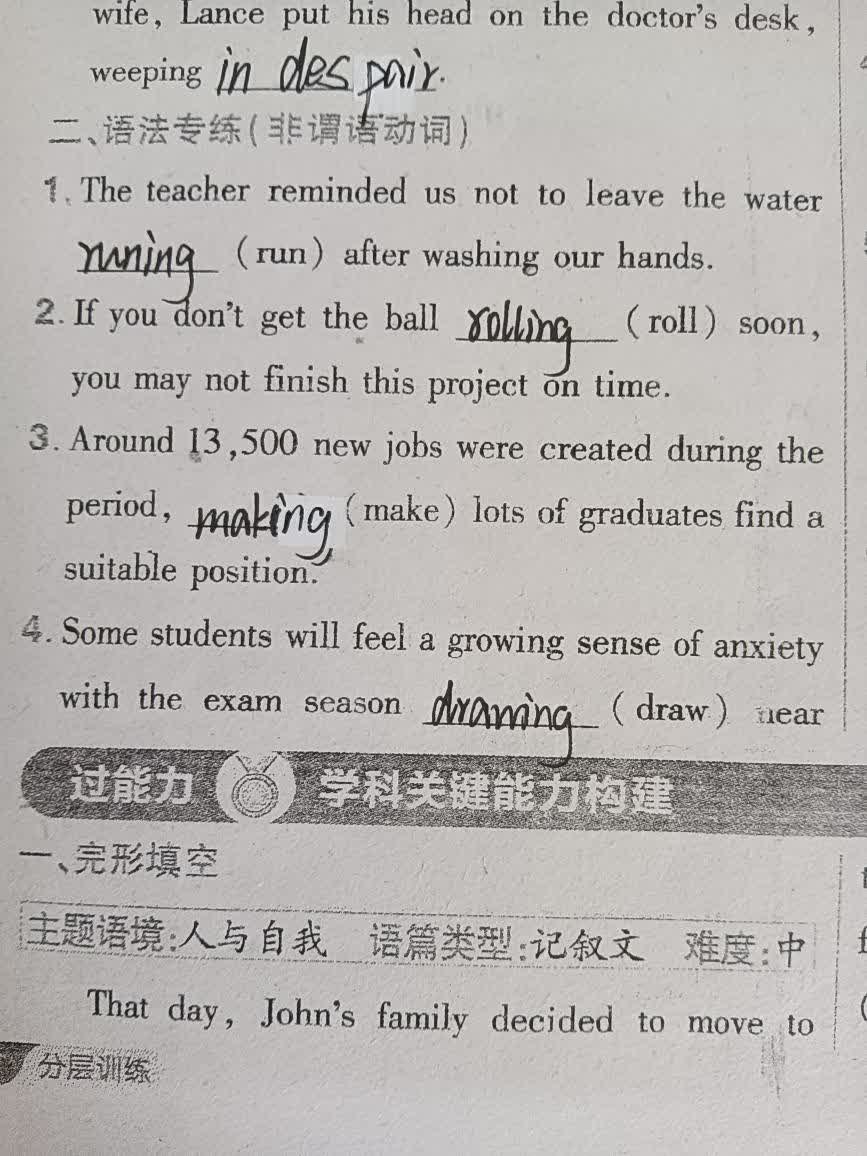 wife, Lance put his head on the doctor's desk,
weeping in despair.
二、语法专练(非谓语动词)
1. The teacher reminded us not to leave the water
runing (run) after washing our hands.
2. If you don't get the ball rolling (roll) soon,
you may not finish this project on time.
3. Around 13,500 new jobs were created during the
period, making (make) lots of graduates find a
suitable position.
4. Some students will feel a growing sense of anxiety
with the exam season drawing (draw) near
过能力 学科关键能力构建
一、完形填空
主题语境:人与自我 语篇类型:记叙文 难度:中
That day, John's family decided to move to
分层训练